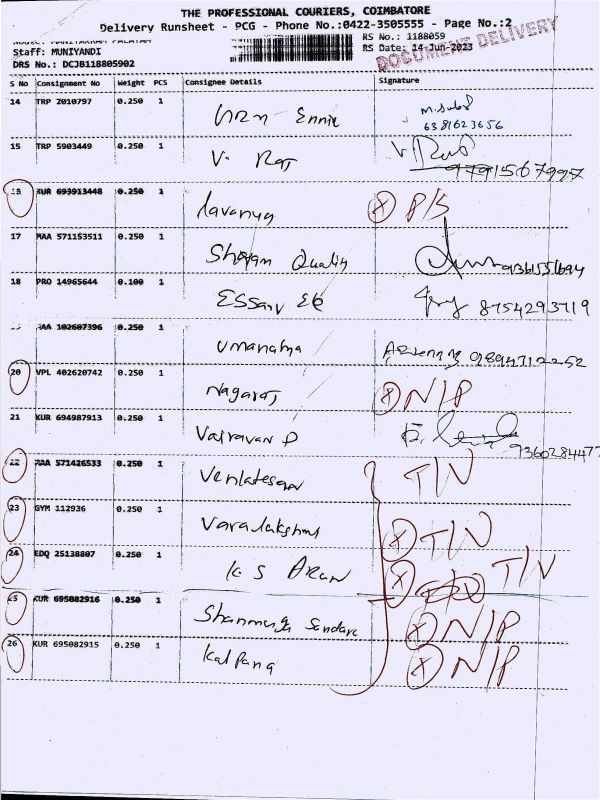 THE PROFESSIONAL COURIERS, COIMBATORE
Delivery Runsheet - PCG - Phone No.:0422-3505555 - Page No.:2
DOCUMENT DELIVERY
Staff: MUNIYANDI
RS No.: 1188059
DRS No.: DCJB118805902
RS Date: 14-Jun-2023
S No Consignment No Weight PCS Consignee Details Signature
14 TRP 2010797 0.250 1
6381623656
15 TRP 5903449 0.250 1 V. Raj
9791567997
KUR 693913448 0.250 1 Lavanya X P/S
17 MAA 571153511 0.250 1 Shyam Quality
18 PRO 14965644 0.100 1 8754293719
102607396 0.250 1 9894712252
20 VPL 402620742 0.250 1 Nagaraj X N/P
21 KUR 694987913 0.250 1 Vairavan P
9360284477
22 571426533 0.250 1 Venkatesan T/V
23 GYM 112936 0.250 1 Varalakshmi X T/V
24 EDQ 25138807 0.250 1 K S Arun X T/V
25 KUR 695082916 0.250 1 X N/P
26 KUR 695082915 0.250 1 Kalpana X N/P